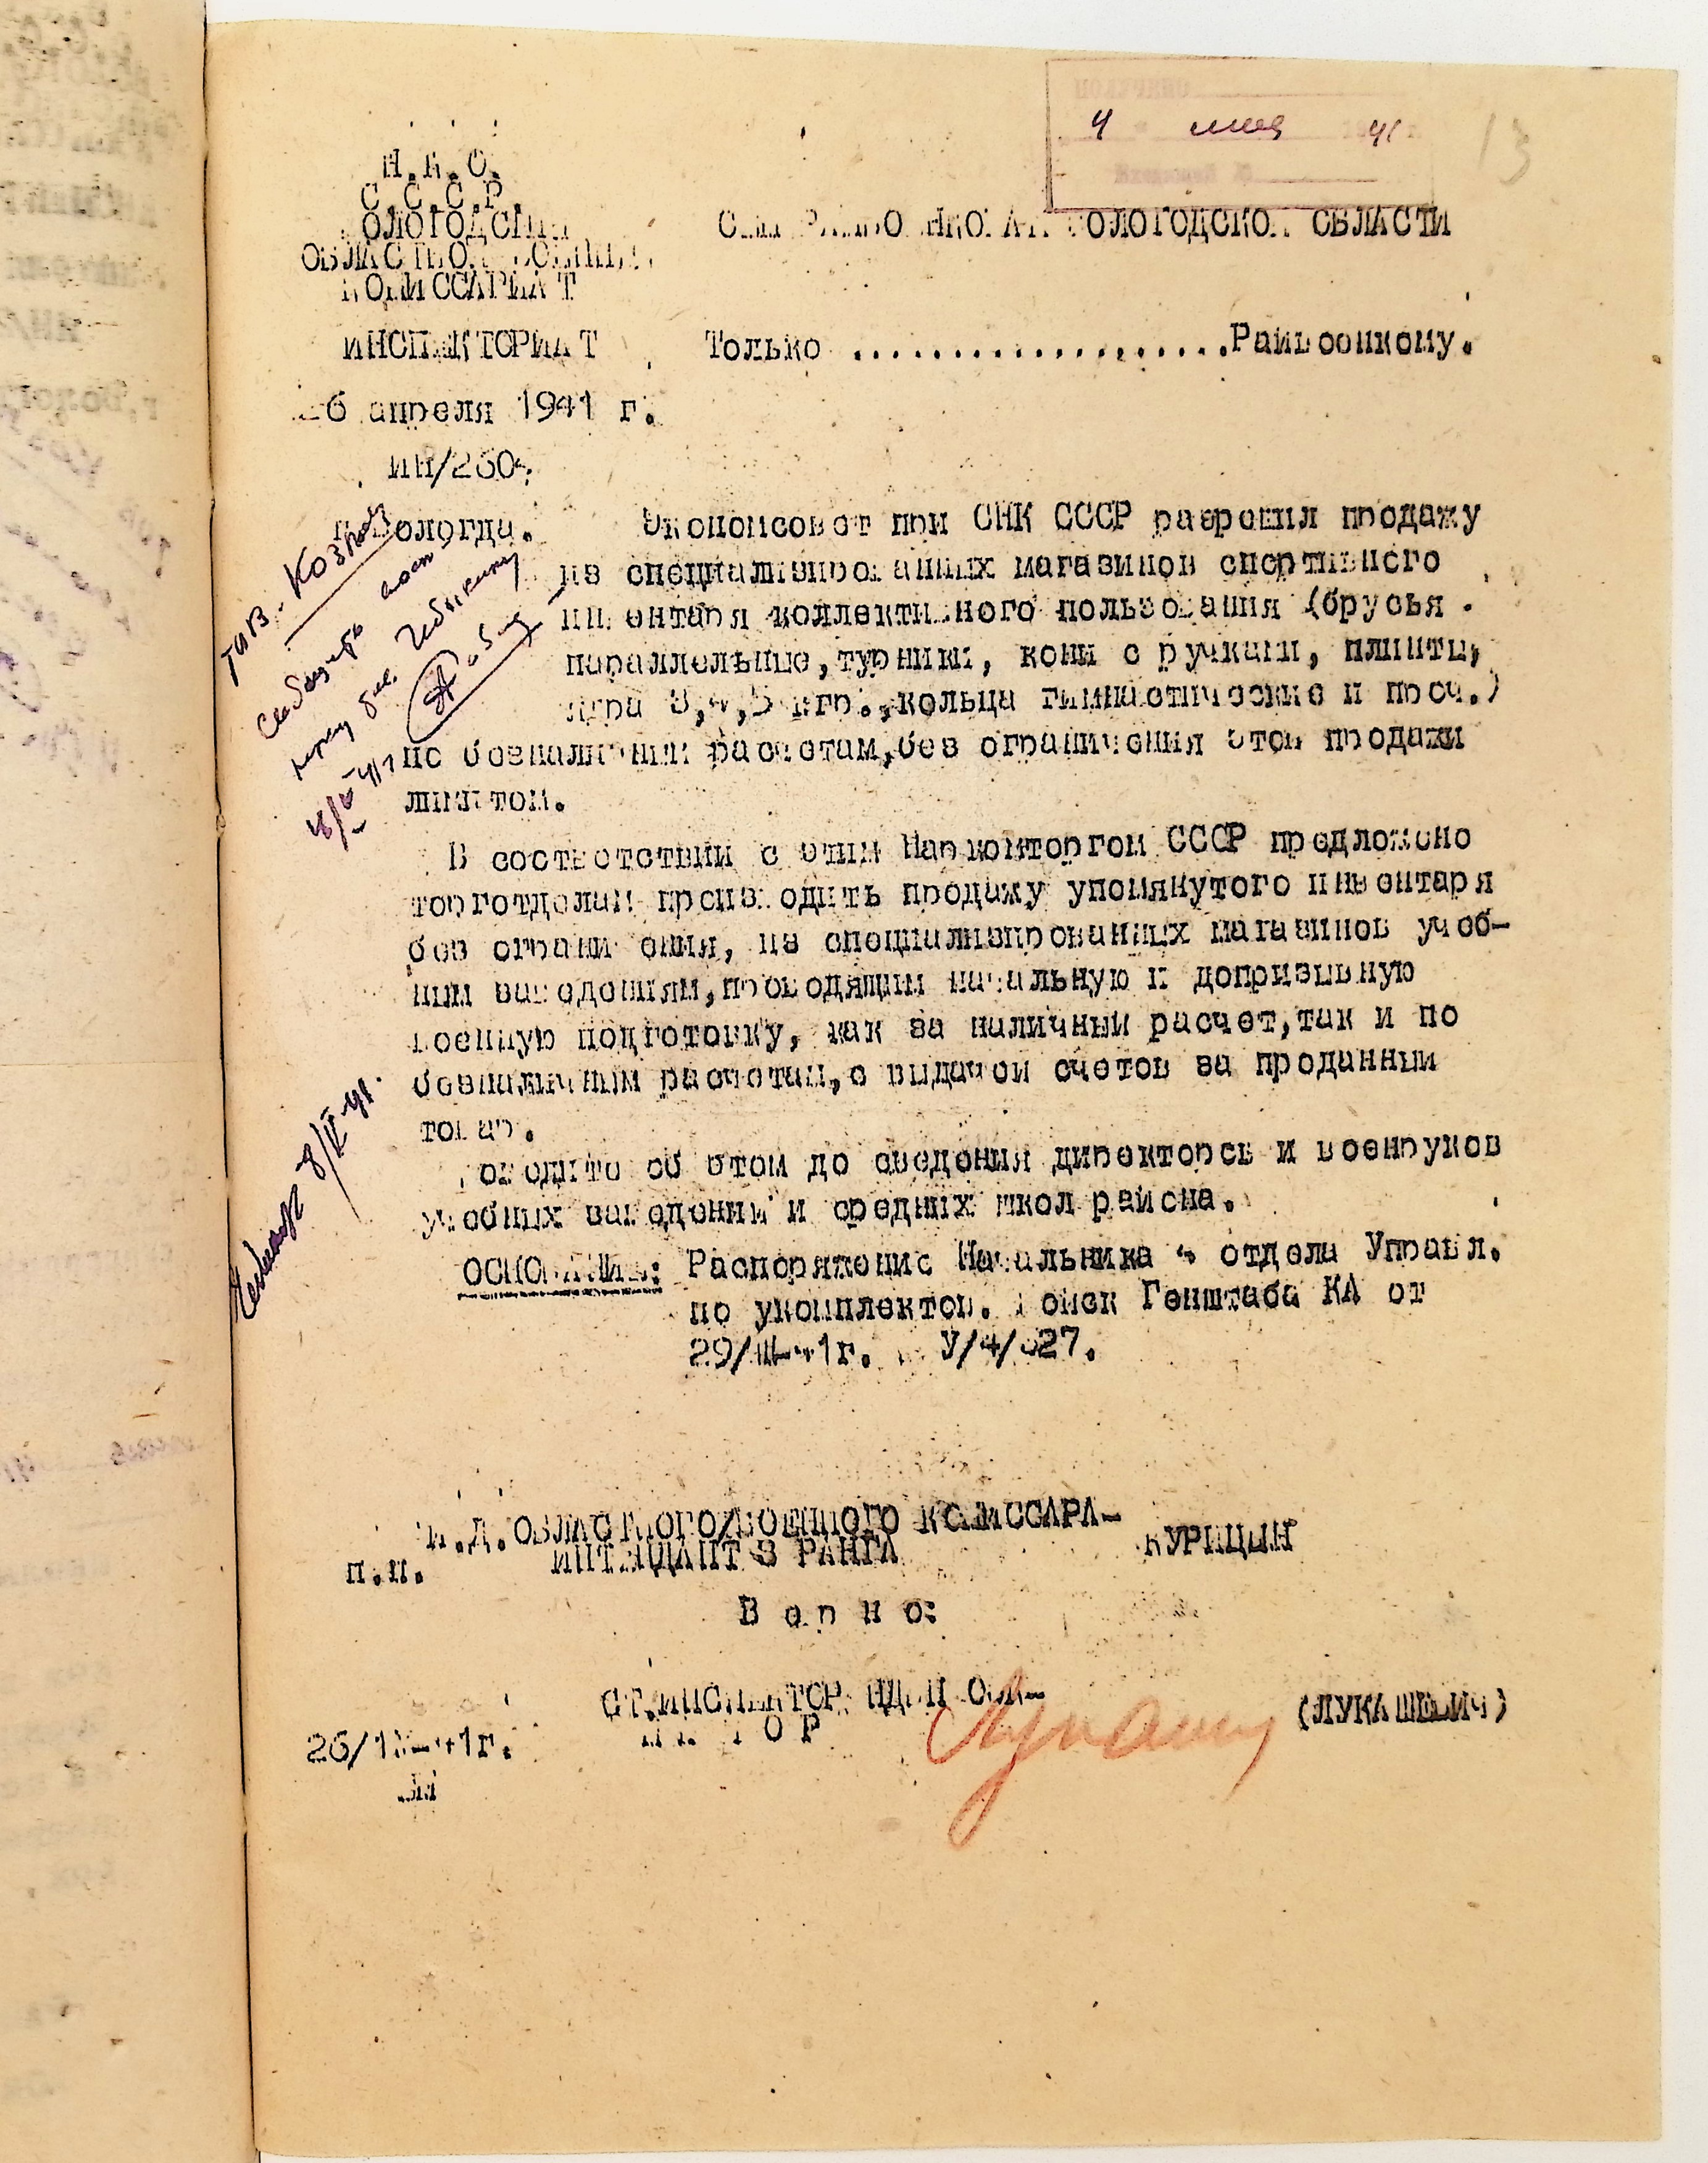 4 мая 41
13
Н.К.О.
С.С.С.Р.
ВОЛОГОДСКИЙ
ОБЛАСТНОЙ ВОЕННЫЙ
КОМИССАРИАТ
ИНСПЕКТОРИАТ
26 апреля 1941 г.
ИН/2304.
г.Вологда.
ВСЕМ РАЙВОЕНКОМАМ ВОЛОГОДСКОЙ ОБЛАСТИ
Только ...................Райвоенкому.
Экономсовет при СНК СССР разрешил продажу
из специализированных магазинов спортивного
инвентаря коллективного пользования (брусья
параллельные,турники, кони с ручками, плинты,
ядра 3,4,5 кгр.,кольца гимнастические и проч.)
по безналичным расчетам,без ограничения этой продажи
лимитом.
В соответствии с этим Наркомторгом СССР предложено
торготделам производить продажу упомянутого инвентаря
без ограничения, из специализированных магазинов учеб-
ным заведениям,проводящим начальную и допризывную
военную подготовку, как за наличный расчет,так и по
безналичным расчетам,с выдачей счетов за проданный
товар.
Доведите об этом до сведения директоров и военруков
учебных заведений и средних школ района.
ОСНОВАНИЕ: Распоряжение Начальника 4 отдела Управл.
по укомплектов. войск Генштаба КА от
29/Ш-41г. У/4/327.
И.Д.ОБЛАСТНОГО ВОЕННОГО КОМИССАРА-
ИНТЕНДАНТ 3 РАНГА КУРИЦЫН
п.п.
В е р н о:
СТ.ИНСПЕКТОР
(ЛУКАШЕВИЧ)
26/1У-41г.
тов. Козлову
8/V 41